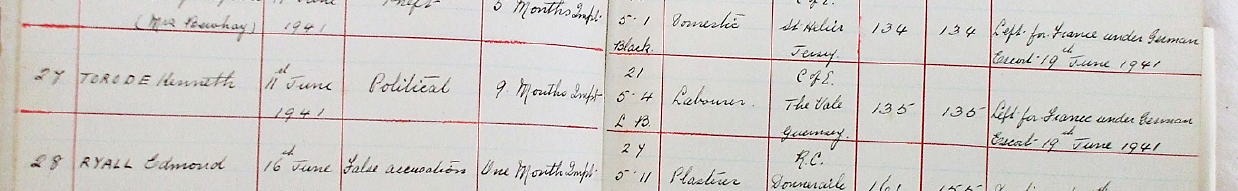 5 Months Impt
(Mrs Bewhay) 1941
5·1 Domestic St Helier 134 134 Left for France under German
Black Jersey. Escort 19th June 1941
27 TORODE Kenneth 11st June Political 9 Months Impt 21 C of E.
5·4 Labourer. The Vale 135 135 Left for France under German
1941 L B. Guernsey. Escort 19th June 1941
28 RYALL Edmond 16st June False accusation One Month Impt 27 R.C.
5·11 Plasterer Donneraile